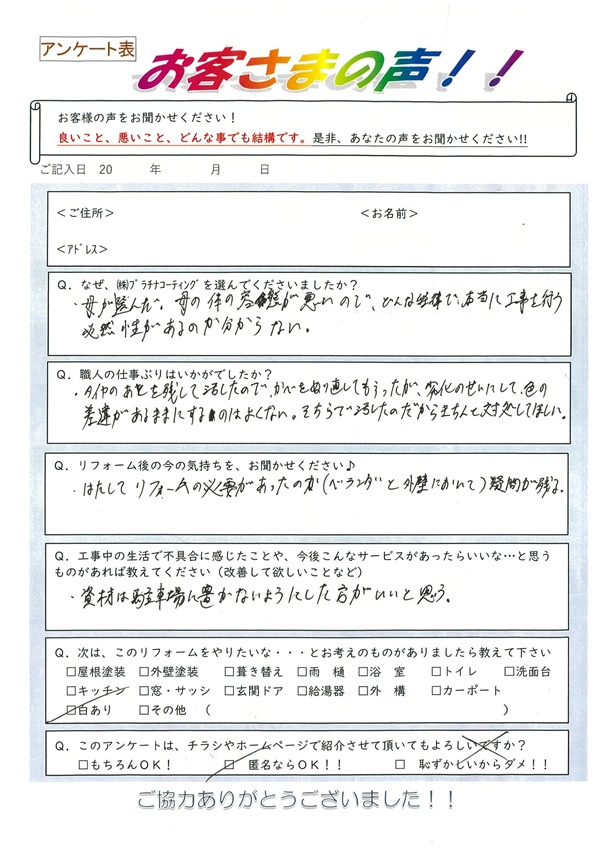 アンケート表
お客さまの声！！
お客様の声をお聞かせください！
良いこと、悪いこと、どんな事でも結構です。是非、あなたの声をお聞かせください!!
ご記入日　20　　　年　　　月　　　日
＜ご住所＞　＜お名前＞
＜ｱﾄﾞﾚｽ＞
Q．なぜ、㈱ﾌﾟﾗﾁﾅｺｰﾃｨﾝｸﾞを選んでくださいましたか？
・母が選んだ。母の体の容態が悪いので、どんな経緯で、本当に工事を行う
必然性があるのか分からない。
Q．職人の仕事ぶりはいかがでしたか？
・タイヤのあとを残して汚したので、かべをぬり直してもらったが、劣化のせいにして、色の
差違があるままにするのはよくない。そちらで汚したのだからきちんと対処してほしい。
Q．リフォーム後の今の気持ちを、お聞かせください♪
・はたしてリフォームの必要があったのか（ベランダと外壁において）疑問が残る。
Q．工事中の生活で不具合に感じたことや、今後こんなサービスがあったらいいな…と思う
ものがあれば教えてください（改善して欲しいことなど）
・資材は駐車場に置かないようにした方がいいと思う。
Q．次は、このリフォームをやりたいな・・・とお考えのものがありましたら教えて下さい
□屋根塗装　□外壁塗装　□葺き替え　□雨　樋　□浴　室　□トイレ　□洗面台
□キッチン　□窓・サッシ　□玄関ドア　□給湯器　□外　構　□カーポート
□白あり　□その他　（　　　）
Q．このアンケートは、チラシやホームページで紹介させて頂いてもよろしいですか？
□もちろんOK！　□　匿名ならOK！！　□　恥ずかしいからダメ！！
ご協力ありがとうございました！！